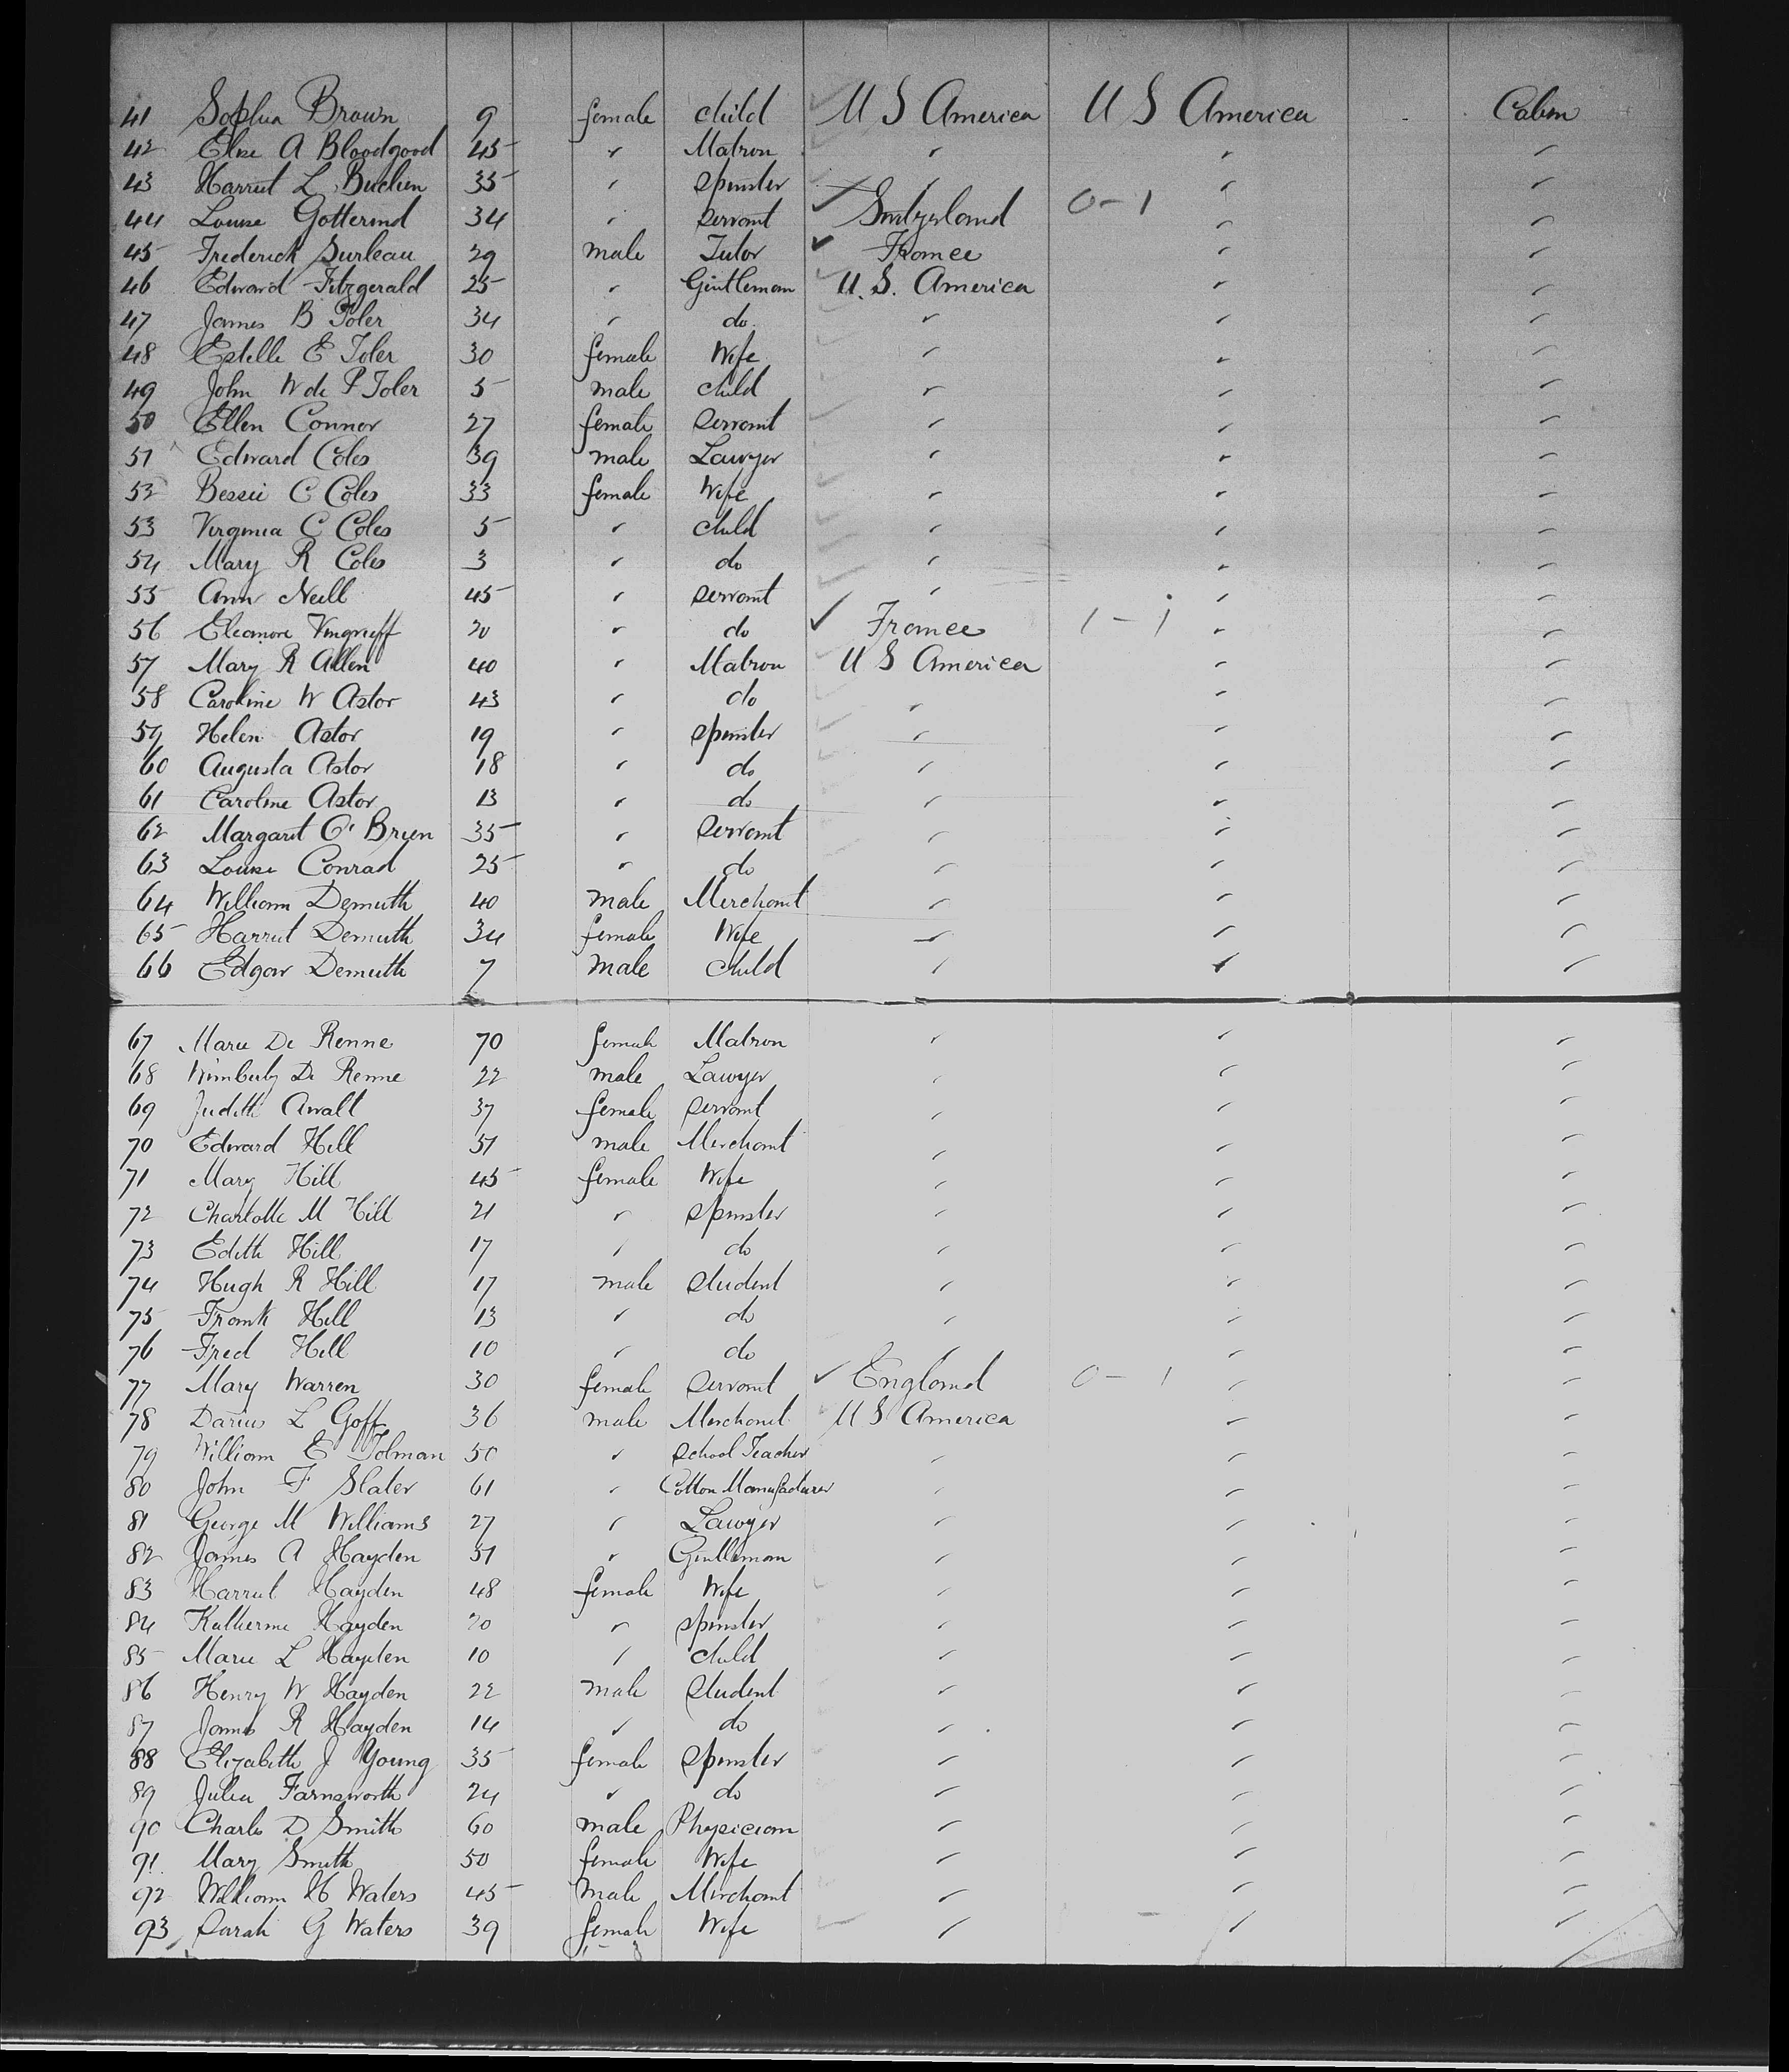 41 Sophia Brown 9 female child U S America U S America Cabin
42 Elise A Bloodgood 45 " Matron " " "
43 Harriet L 35 " Spinster " " "
44 Louise 34 " Servant Switzerland 0-1 " "
45 Frederick Surleau 29 male Tutor France " "
46 Edward Fitzgerald 25 " Gentleman U.S. America " "
47 James B Toler 34 " do " " "
48 Estelle E Toler 30 female Wife " " "
49 John W de P Toler 5 male child " " "
50 Ellen Connor 27 female Servant " " "
51 Edward Coles 39 male Lawyer " " "
52 Bessie C Coles 33 female Wife " " "
53 Virginia C Coles 5 " child " " "
54 Mary R Coles 3 " do " " "
55 Ann Neill 45 " Servant " " "
56 Eleanore 20 " do France 1-1 " "
57 Mary R Allen 40 " Matron U S America " "
58 Caroline W Astor 43 " do " " "
59 Helen Astor 19 " Spinster " " "
60 Augusta Astor 18 " do " " "
61 Caroline Astor 13 " do " " "
62 Margaret O'Brien 35 " Servant " " "
63 Louise Conrad 25 " do " " "
64 William Demuth 40 male Merchant " " "
65 Harriet Demuth 34 female Wife " " "
66 Edgar Demuth 7 male child " " "
67 Marie De Renne 70 female Matron " " "
68 Wimberly De Renne 22 male Lawyer " " "
69 Judith Awalt 37 female Servant " " "
70 Edward Hill 51 male Merchant " " "
71 Mary Hill 45 female Wife " " "
72 Charlotte M Hill 21 " Spinster " " "
73 Edith Hill 17 " do " " "
74 Hugh R Hill 17 male Student " " "
75 Frank Hill 13 " do " " "
76 Fred Hill 10 " do " " "
77 Mary Warren 30 female Servant England 0-1 " "
78 Darius L Goff 36 male Merchant U S America " "
79 William E Tolman 50 " School Teacher " " "
80 John F Slater 61 " Cotton Manufacturer " " "
81 George M Williams 27 " Lawyer " " "
82 James A Hayden 51 " Gentleman " " "
83 Harriet Hayden 48 female Wife " " "
84 Katherine Hayden 20 " Spinster " " "
85 Marie L Hayden 10 " child " " "
86 Henry W Hayden 22 male Student " " "
87 James R Hayden 14 " do " " "
88 Elizabeth J Young 35 female Spinster " " "
89 Julia Farnsworth 24 " do " " "
90 Charles D Smith 60 male Physician " " "
91 Mary Smith 50 female Wife " " "
92 William H Waters 45 male Merchant " " "
93 Sarah G Waters 39 female Wife " " "